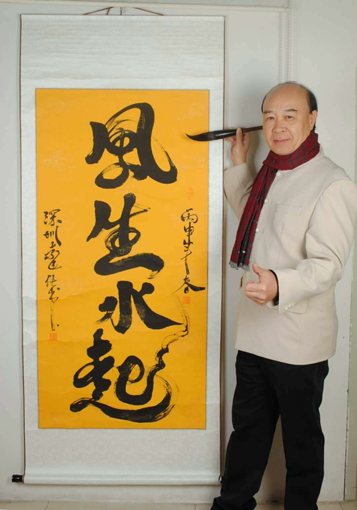 風生水起
丙申年春
深圳